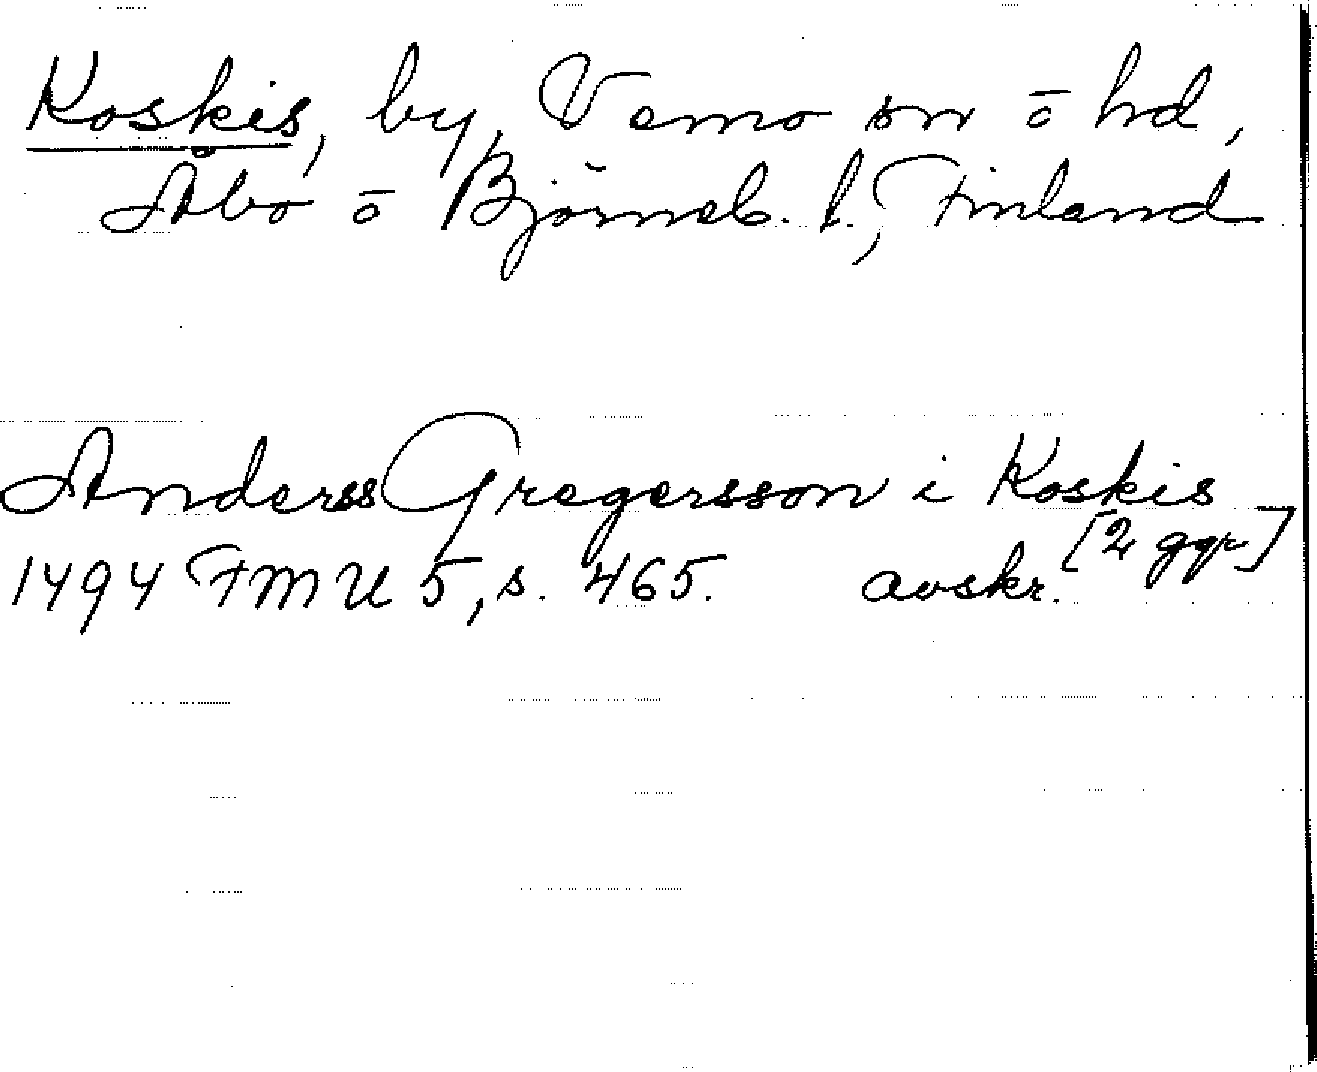 Koskis, by, Vemo sn ō hd,
Åbo ō Björneb. l., Finland
Anderss Gregersson i Koskis
[2 ggr]
1494 FMU 5, s. 465. avskr.